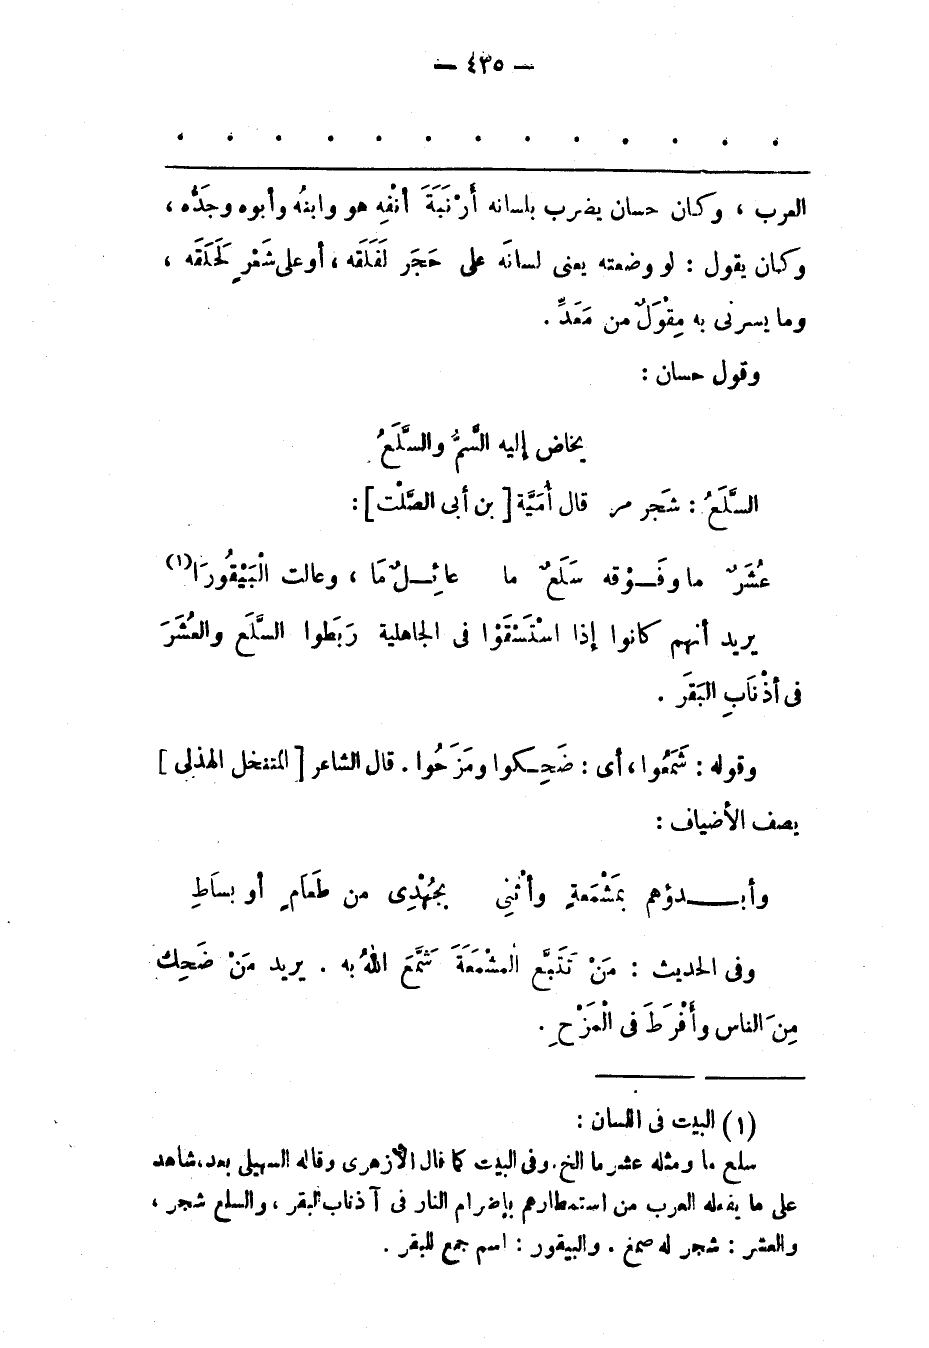 — ٤٣٥ —
. . . . . . . . . . . . .
العرب ، وكان حسان يضرب بلسانه أَرْنَبَةَ أنْفِه هو وابنُه وأبوه وجَدُّه ،
وكان يقول : لو وضعته يعنى لسانَه على حَجَر لَفَلَقه ، أو على شَعْرٍ لَحَلَقَه ،
وما يسرنى به مِقْوَلٌ من مَعَدٍّ .
وقول حسان :
يخاض إليه السَّمُّ والسَّلَعُ
السَّلَعُ : شَجر مر قال أُمَيَّة [ بن أبى الصَّلْت ] :
عُشَرٌ ما وفَـوْقه سَلَعٌ ما عائِـلٌ مَا ، وعالت الْبَيْقُورَا (١)
يريد أنهم كانوا إذا اسْتَسْقَوْا فى الجاهلية رَبَطوا السَّلَع والعُشَرَ
فى أذْنَابِ البَقَر .
وقوله : شَمَعُوا ، أى : ضَحِـكوا ومَزَحُوا . قال الشاعر [ المتنخل الهذلى ]
يصف الأضياف :
وأبـــدؤهم بمَشْمَعةٍ وأثْنِى بجُهْدِى من طَعَامٍ أو بساَطِ
وفى الحديث : مَنْ تَتَبَّع المشْمَعَةَ شَمَّعَ اللهُ به . يريد مَنْ ضَحِك
مِنَ الناس وأَفْرَطَ فى الْمَزْحِ .
(١) البيت فى اللسان :
سلع ما ومثله عشر ما الخ . وفى البيت كما قال الأزهرى وقاله السهيلى بعد ، شاهد
على ما يفعله العرب من استمطارهم بإضرام النار فى آذناب البقر ، والسلع شجر ،
والعشر : شجر له صمغ . والبيقور : اسم جمع للبقر .